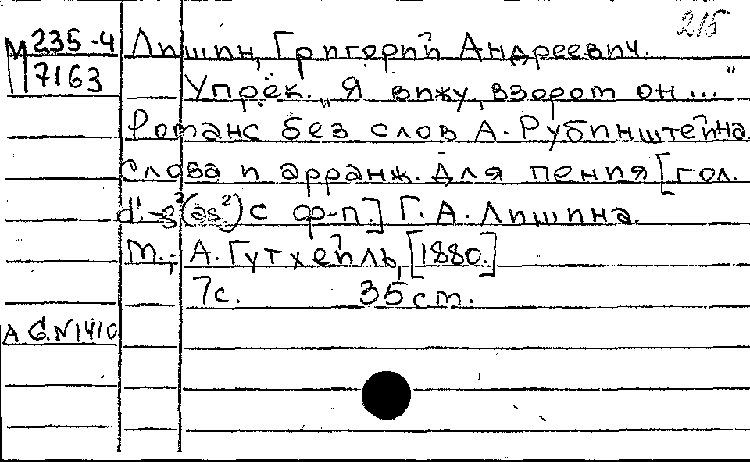 215
М 235-4 Лишин, Григорий Андреевич.
7163 Упрёк. „Я вижу, взором он..."
Романс без слов А. Рубинштейна.
Слова и арранж. для пения [гол.
d'-g²(as²) с ф-п.] Г. А. Лишина.
М., А. Гутхейль, [1880.]
7с. 35 cm.
А.G.N1410